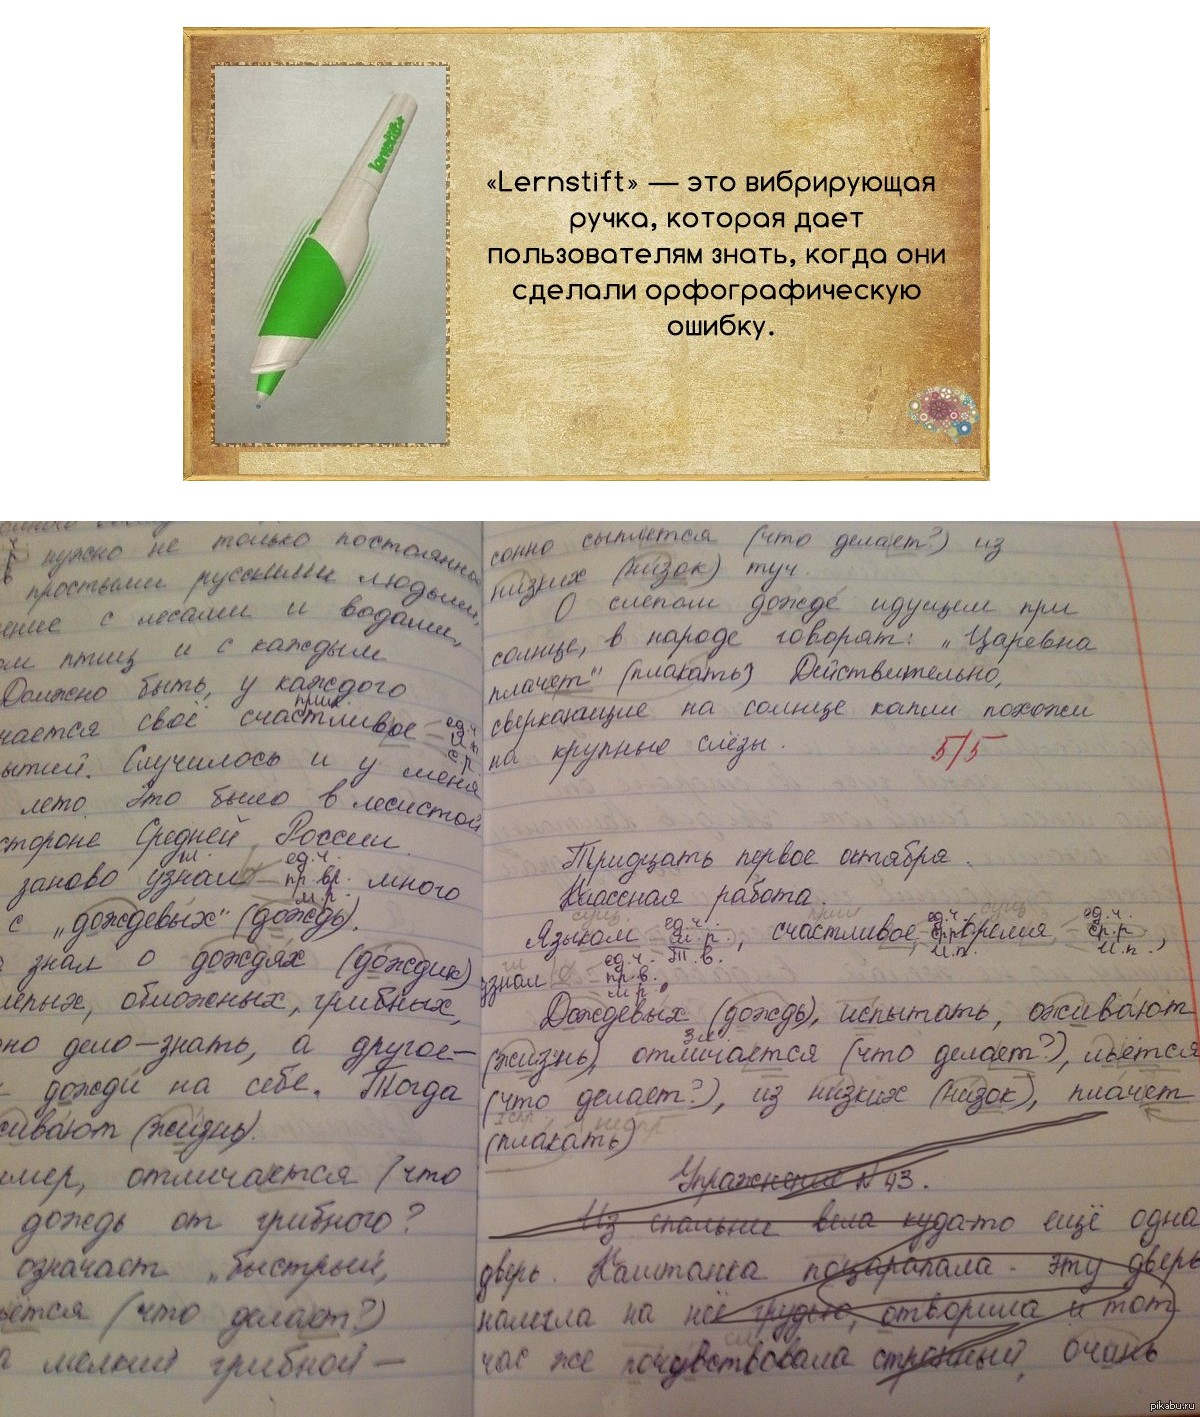 lernstift
«Lernstift» — это вибрирующая
ручка, которая дает
пользователям знать, когда они
сделали орфографическую
ошибку.
нужно не только постоянно
простыми русскими людьми,
с лесами и водами,
птиц и с каждым
Должно быть, у каждого
прил.
чается своё счастливое – ед.ч.
И.п.
ср.р.
ытий. Случилось и у меня
лето. Это было в лесистой
стороне Средней России.
гл. ед.ч.
заново узнал – пр.вр. много
м.р.
с „дождевых" (дождь).
знал о дождях (дождик)
епых, обложных, грибных,
но дело – знать, а другое –
дожди на себе. Тогда
живают (жизнь).
мер, отличается (что
дождь от грибного?
означает „быстрый,
ьётся (что делает?)
а мелкий грибной –
сонно сыплется (что делает?) из
низких (низок) туч.
О слепом дожде идущем при
солнце, в народе говорят: „Царевна
плачет" (плакать) Действительно,
сверкающие на солнце капли похожи
на крупные слёзы.
5/5
Тридцать первое октября.
Классная работа.
сущ. ед.ч. прил. ед.ч. сущ. ед.ч.
Языком – м.р., счастливое, ср.р. время – ср.р.,
Т.в. И.п. И.п.
гл ед.ч.
узнал – пр.в.
м.р.
Дождевых (дождь), испытать, оживают
(жизнь), отличается (что делает?), льётся
(что делает?), из низких (низок), плачет
(плакать)
Упражнение №93.
Из спальни вела куда то ещё одна
дверь. Каштанка поцарапала эту дверь
налегла на неё грудью, отворила и тот
час же почувствовала странный, очань
pikabu.ru